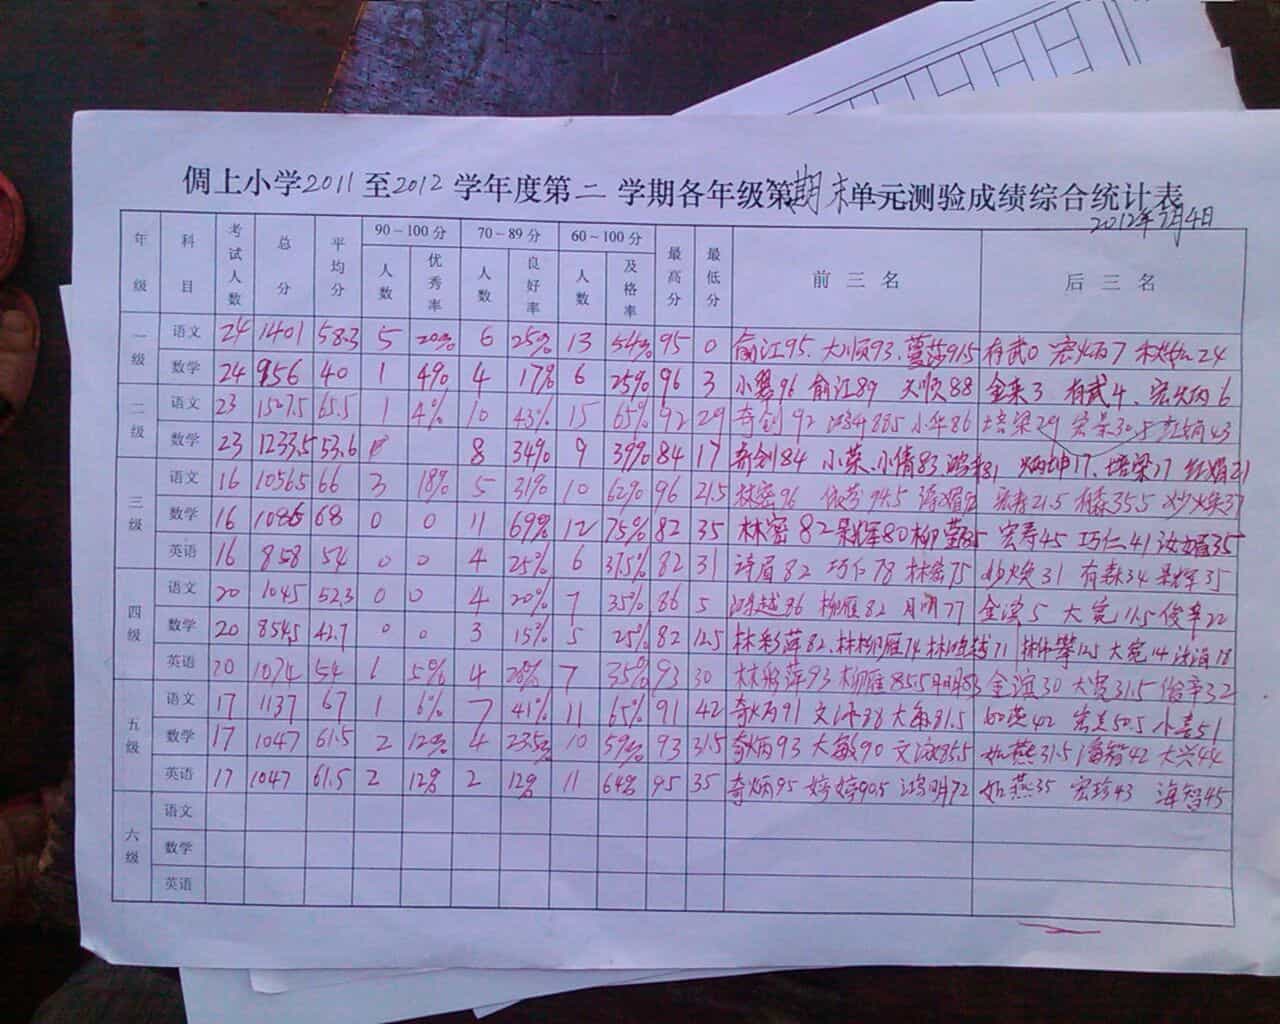 倜上小学2011至2012学年度第二学期各年级第期末单元测验成绩综合统计表
2012年7月4日
年级 科目 考试人数 总分 平均分 90~100分 70~89分 60~100分 最高分 最低分 前三名 后三名
人数 优秀率 人数 良好率 人数 及格率
一级 语文 24 1401 58.3 5 20% 6 25% 13 54% 95 0 俞江95. 大顺93. 91.5 有武0 宏炳7 24
数学 24 956 40 1 4% 4 17% 6 25% 96 3 小琴96 俞江89 大顺88 金来3 有武4. 宏炳6
二级 语文 23 1507.5 65.5 1 4% 10 43% 15 65% 92 29 奇创92 88.5 小华86 培梁29 30.5 43
数学 23 1233.5 53.6 8 34% 9 39% 84 17 奇创84 小荣.小倩83 81 炳坤17. 培梁17 21
三级 语文 16 1056.5 66 3 18% 5 31% 10 62% 96 21.5 林密96 94.5 宏寿21.5 有森35.5 妙焕37
数学 16 1086 68 0 0 11 69% 12 75% 82 35 林密82 80 宏寿45 巧仁41 35
英语 16 858 54 0 0 4 25% 6 37.5% 82 31 诗眉82 巧仁78 林密75 妙焕31 有森34 35
四级 语文 20 1045 52.3 0 0 4 20% 7 35% 86 5 鸿越86 柳雁82 月明77 5 大宽11.5 俊辛22
数学 20 854.5 42.7 0 0 3 15% 5 25% 82 12.5 林彩萍82. 林柳雁74 林鸿越71 12.5 大宽14 18
英语 20 1074 54 1 5% 4 20% 7 35% 93 30 林彩萍93 柳雁85.5 金谊30 大宽31.5 俊辛32
五级 语文 17 1137 67 1 6% 7 41% 11 65% 91 42 奇炳91 88 大敏81.5 如燕42 50.5 51
数学 17 1047 61.5 2 12% 4 23.5% 10 59% 93 31.5 奇炳93 大敏90 85.5 如燕31.5 42 大兴44
英语 17 1047 61.5 2 12% 2 12% 11 64% 95 35 奇炳95 婷婷90.5 鸿明72 如燕35 宏珍43 海智45
六级 语文
数学
英语